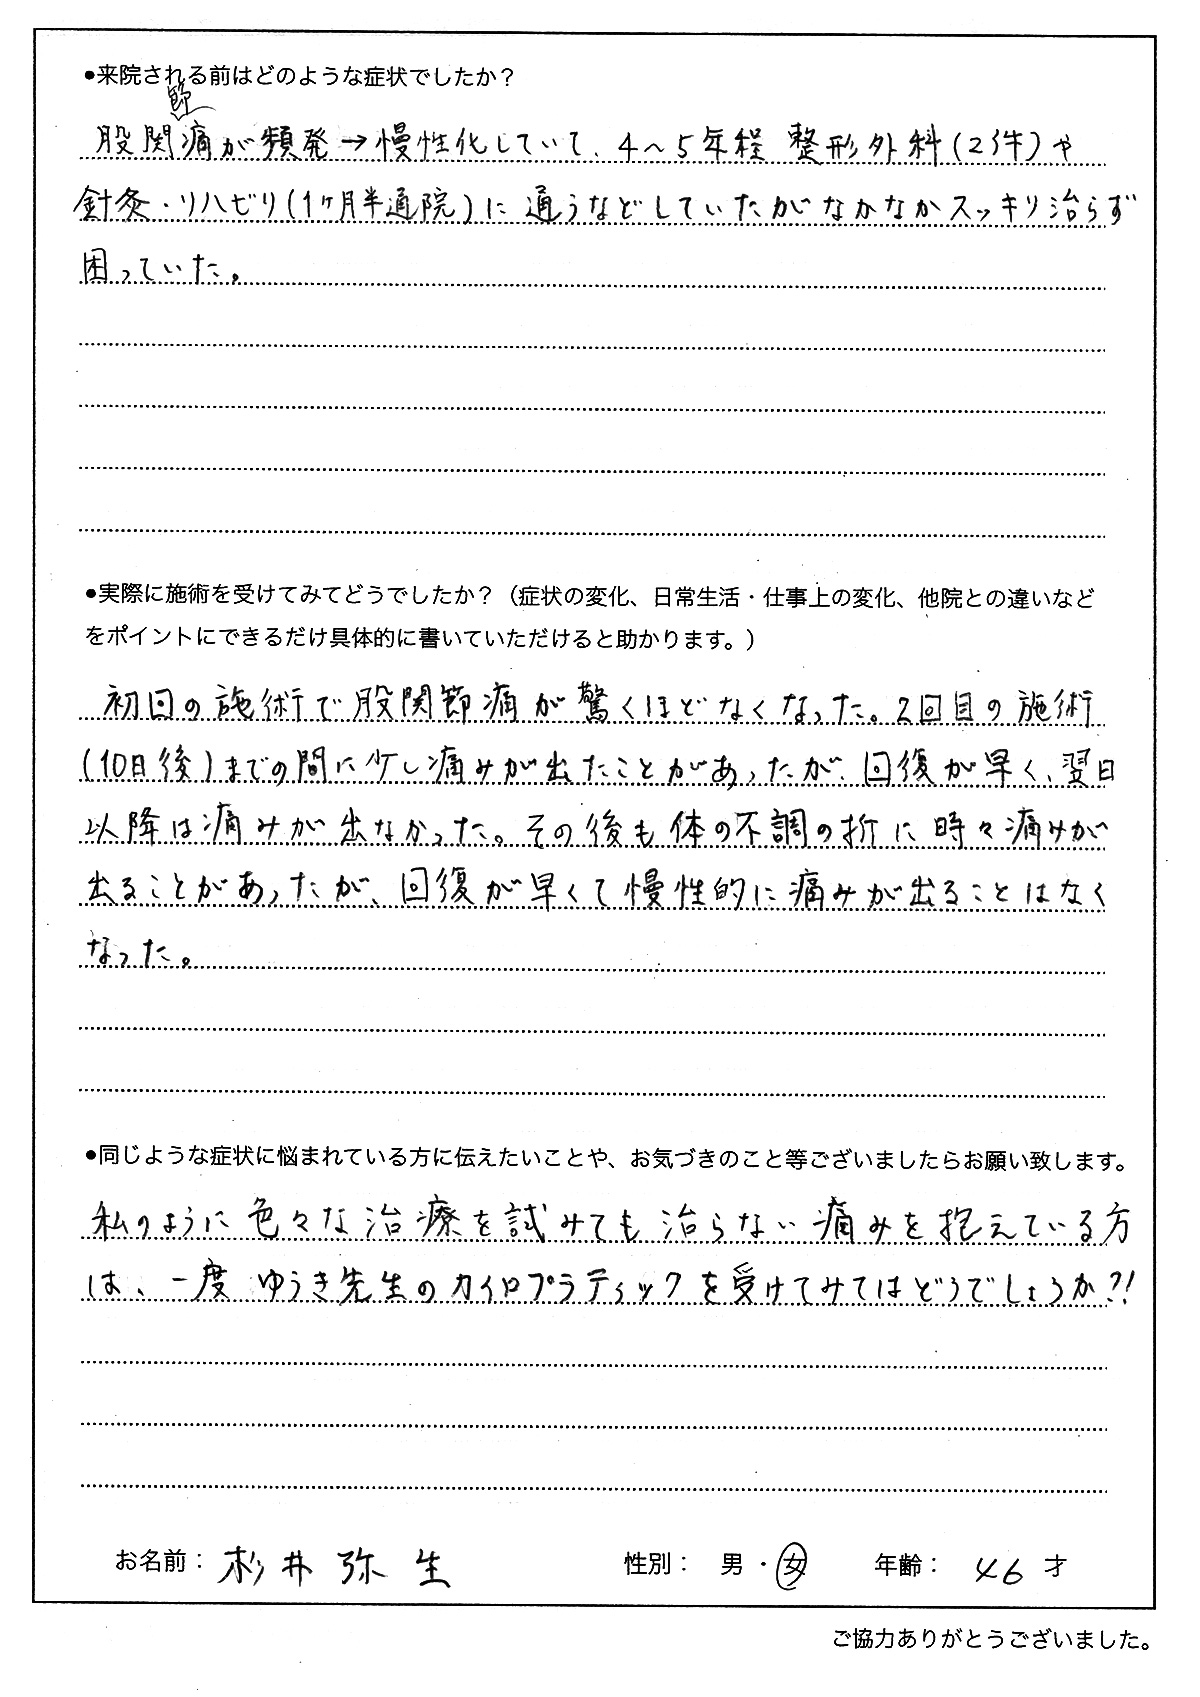 ●来院される前はどのような症状でしたか？
股関節痛が頻発→慢性化していて、4〜5年程 整形外科(2件)や
針灸・リハビリ(1ヶ月半通院)に通うなどしていたがなかなかスッキリ治らず
困っていた。
●実際に施術を受けてみてどうでしたか？（症状の変化、日常生活・仕事上の変化、他院との違いなど
をポイントにできるだけ具体的に書いていただけると助かります。）
初回の施術で股関節痛が驚くほどなくなった。2回目の施術
(10日後)までの間に少し痛みが出たことがあったが、回復が早く、翌日
以降は痛みが出なかった。その後も体の不調の折に時々痛みが
出ることがあったが、回復が早くて慢性的に痛みが出ることはなく
なった。
●同じような症状に悩まれている方に伝えたいことや、お気づきのこと等ございましたらお願い致します。
私のように色々な治療を試みても治らない痛みを抱えている方
は、一度 ゆうき先生のカイロプラティックを受けてみてはどうでしょうか?!
お名前： 杉井弥生 性別： 男・女 年齢： 46 才
ご協力ありがとうございました。